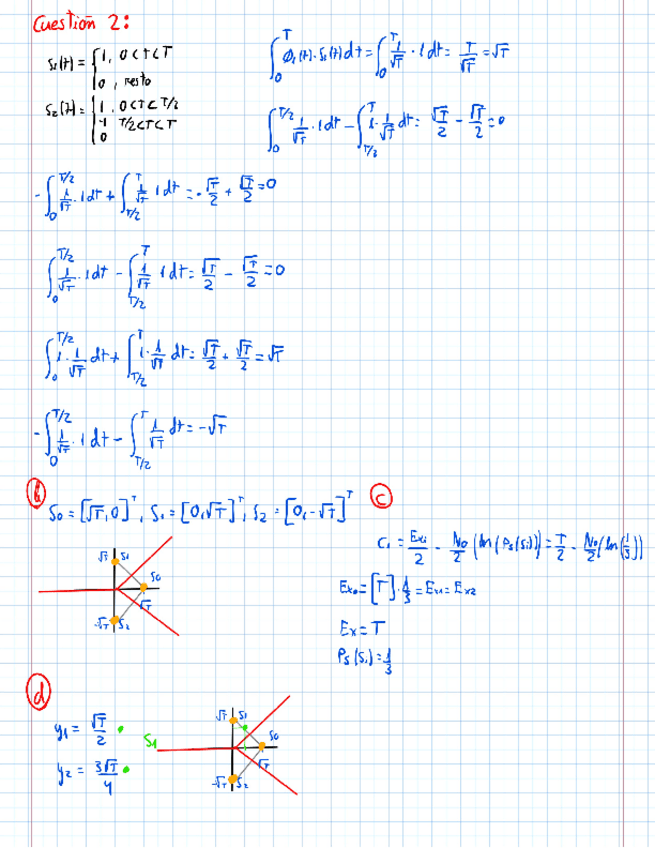 Cuestion 2:
S₁(t) = { 1, 0<t<T
0, resto
S₂(t) = { 1, 0<t<T/2
-1 T/2<t<T
0
∫₀^T ϕ₁(t)·S₁(t)dt = ∫₀^T 1/√T · 1 dt = T/√T = √T
∫₀^{T/2} 1/√T · 1 dt - ∫_{T/2}^T 1·1/√T dt = √T/2 - √T/2 = 0
-∫₀^{T/2} 1/√T · 1 dt + ∫_{T/2}^T 1/√T 1 dt = -√T/2 + √T/2 = 0
∫₀^{T/2} 1/√T · 1 dt - ∫_{T/2}^T 1/√T 1 dt = √T/2 - √T/2 = 0
∫₀^{T/2} 1·1/√T dt + ∫_{T/2}^T 1·1/√T dt = √T/2 + √T/2 = √T
-∫₀^{T/2} 1/√T · 1 dt - ∫_{T/2}^T 1/√T dt = -√T
b
S₀ = [√T, 0]^T, S₁ = [0, √T]^T, S₂ = [0, -√T]^T
√T S₁
S₀
√T
-√T S₂
c
C₁ = Exi/2 - No/2 (ln(Ps(Si)) = T/2 - No/2 (ln(1/3))
Ex₀ = [T]·1/3 = Ex₁ = Ex₂
Ex = T
Ps(Si) = 1/3
d
y₁ = √T/2
S₁
y₂ = 3√T/4
√T S₁
S₀
√T
-√T S₂